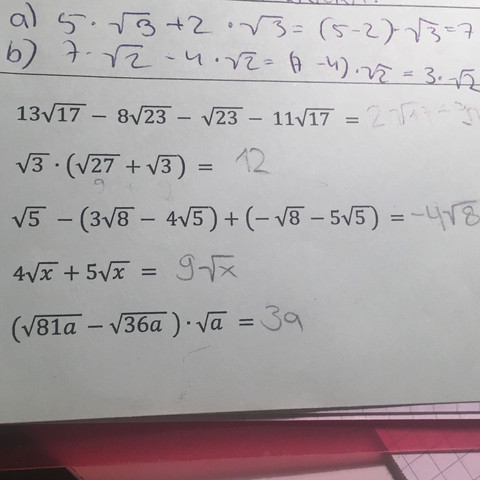 a) 5 · √3 + 2 · √3 = (5-2) · √3 = 7
b) 7 · √2 - 4 · √2 = (7 - 4) · √2 = 3 · √2
13√17 − 8√23 − √23 − 11√17 =
√3 · (√27 + √3) = 12
√5 − (3√8 − 4√5) + (−√8 − 5√5) = -4√8
4√x + 5√x = 9√x
(√81a − √36a) · √a = 3a